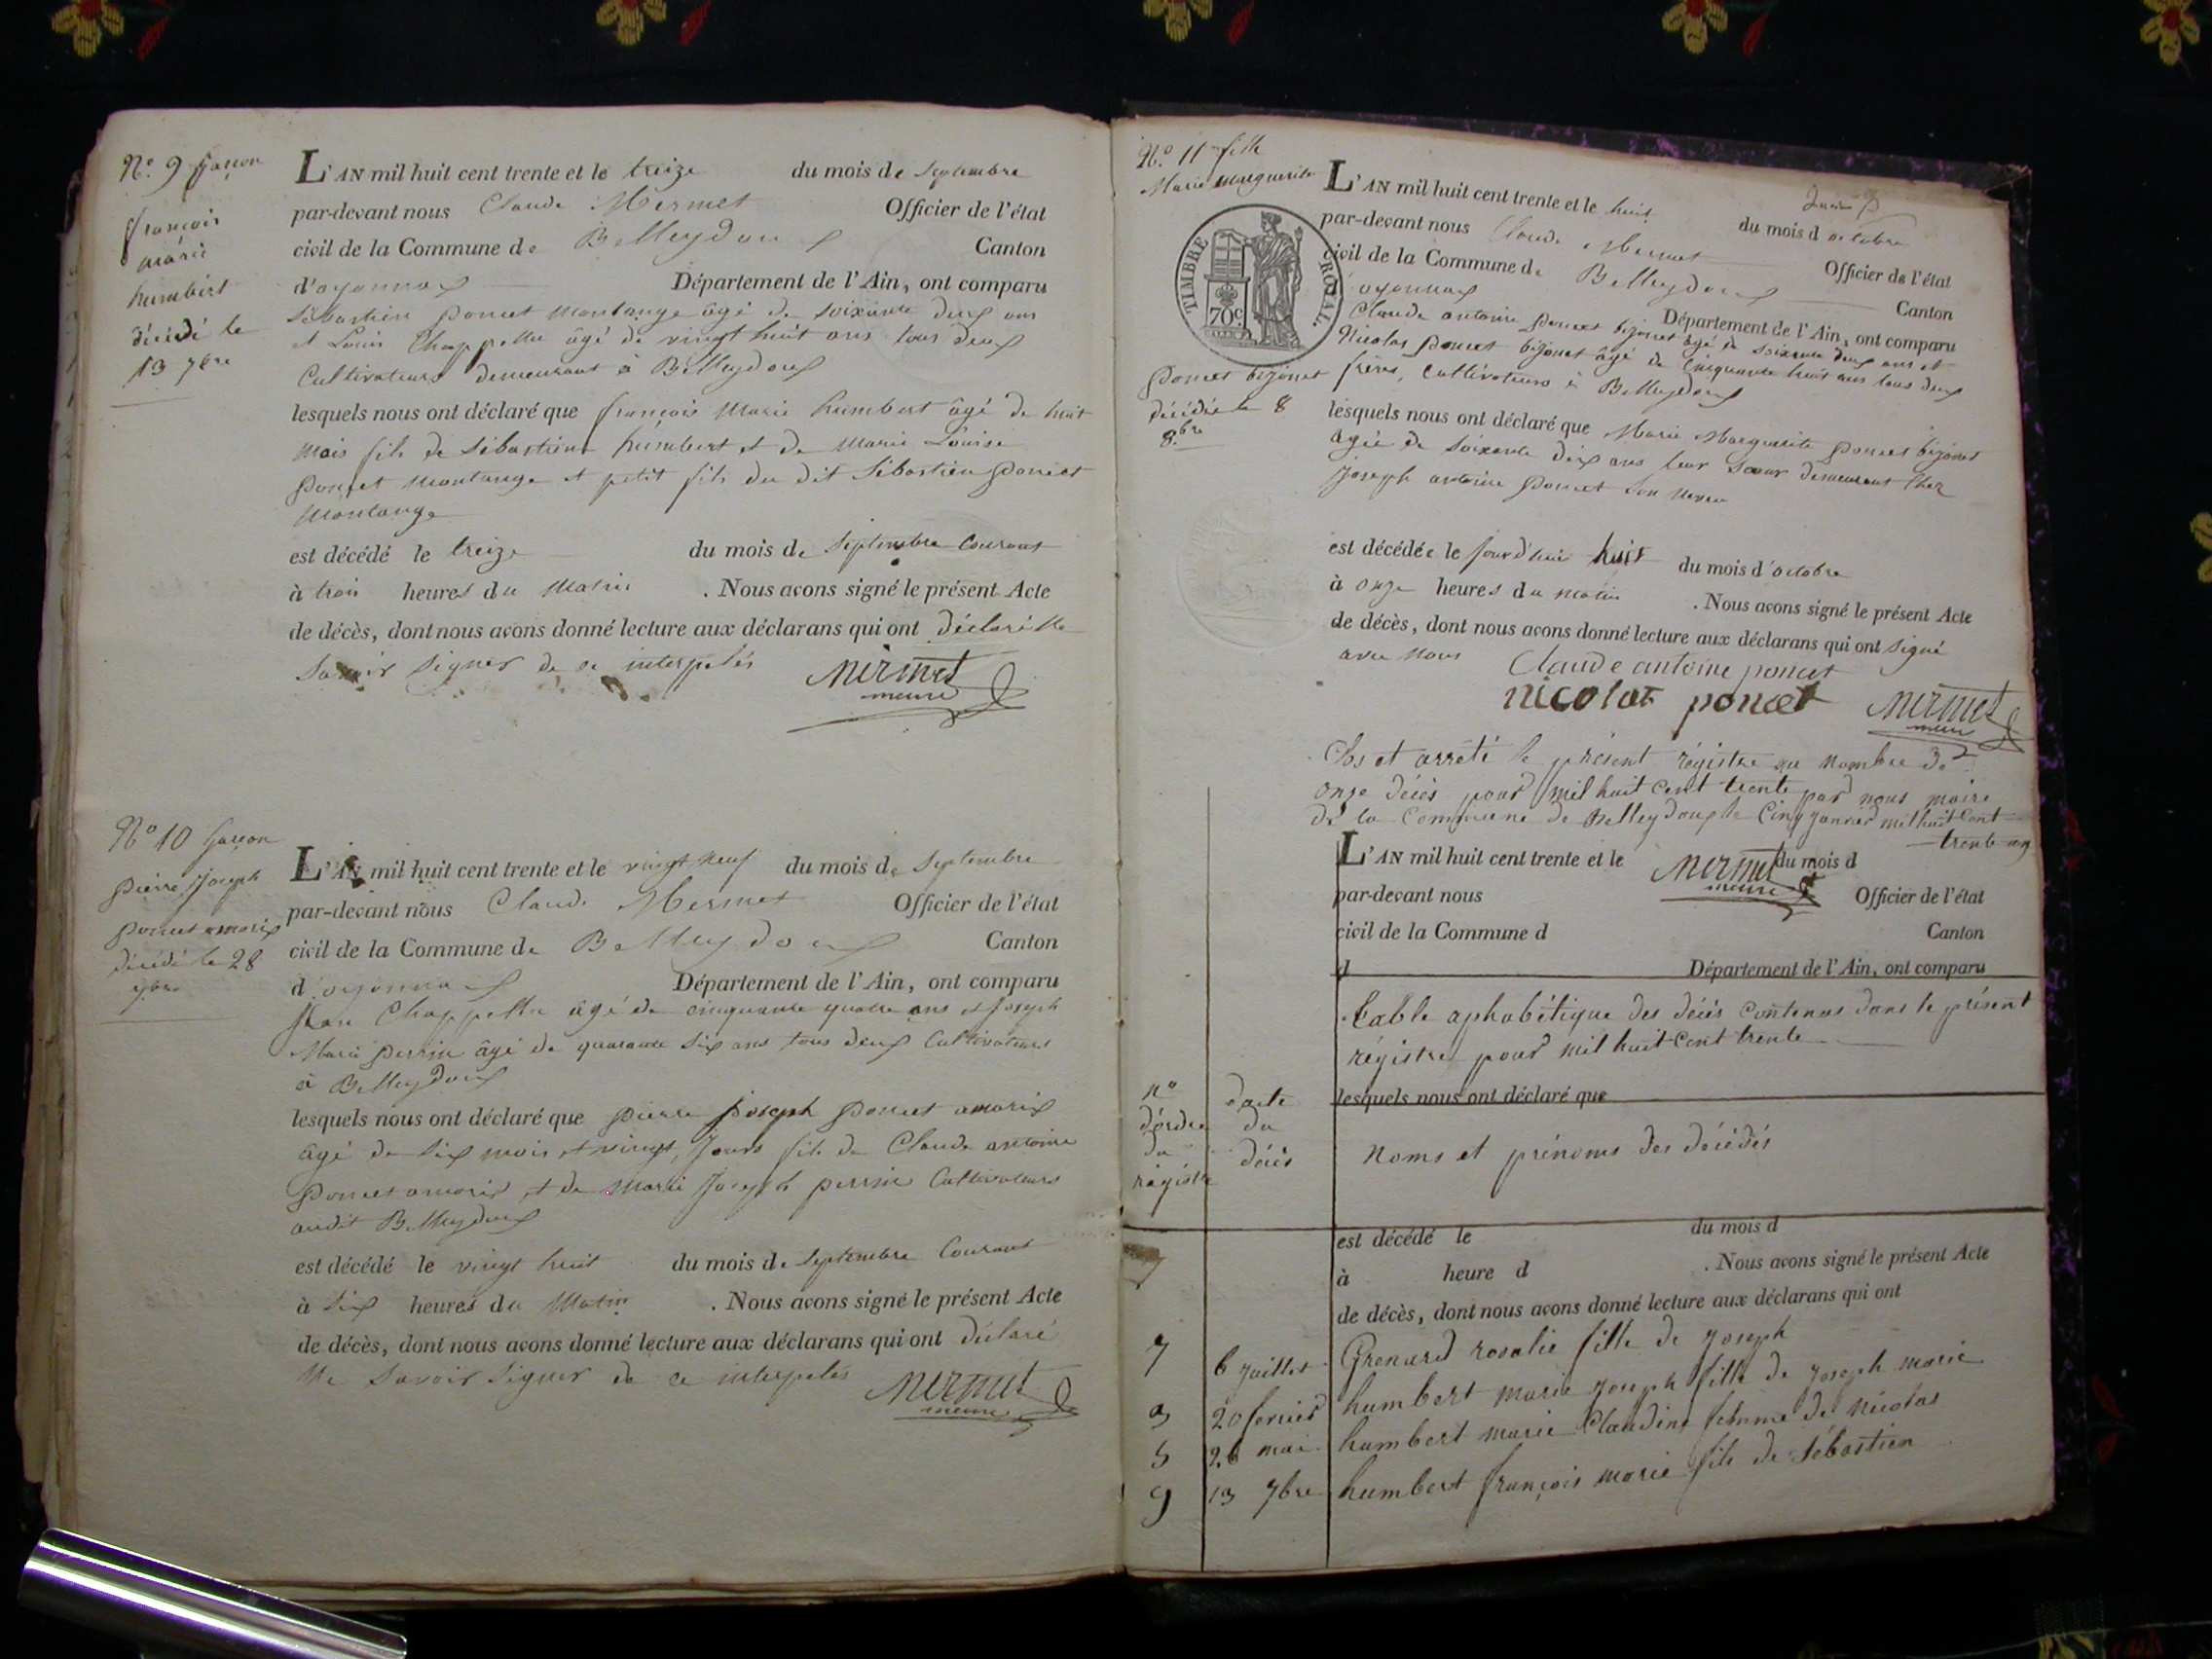 N.º 9 garçon
françois
marie
humbert
décédé le
13 7bre
L'AN mil huit cent trente et le treize du mois de Septembre
par-devant nous Claude Mermet Officier de l'état
civil de la Commune de Belleydoux Canton
d'oyonnax Département de l'Ain, ont comparu
Sébastien poncet montange âgé de soixante deux ans
et Louis Chappellu âgé de vingt huit ans tous deux
Cultivateurs demeurant à Belleydoux
lesquels nous ont déclaré que françois Marie humbert âgé de huit
mois fils de Sébastien humbert et de Marie Louise
poncet montange et petit fils du dit Sébastien poncet
montange
est décédé le treize du mois de Septembre Courant
à trois heures du matin . Nous avons signé le présent Acte
de décès, dont nous avons donné lecture aux déclarans qui ont déclaré Ne
Savoir Signer de ce interpelés Mermet
meire
Nº 10 garçon
pierre Joseph
poncet amorix
décédé le 28
7bre
L'AN mil huit cent trente et le vingt neuf du mois de Septembre
par-devant nous Claude Mermet Officier de l'état
civil de la Commune de Belleydoux Canton
d'oyonnax Département de l'Ain, ont comparu
Jean Chappellu âgé de cinquante quatre ans et Joseph
Marie perrin âgé de quarante six ans tous deux Cultivateurs
à Belleydoux
lesquels nous ont déclaré que pierre Joseph poncet amorix
âgé de Six mois et vingt Jours fils de Claude antoine
poncet amorix et de Marie Joseph perrin Cultivateurs
audit Belleydoux
est décédé le vingt huit du mois de Septembre Courant
à Six heures du Matin . Nous avons signé le présent Acte
de décès, dont nous avons donné lecture aux déclarans qui ont déclaré
Ne Savoir Signer de ce interpelés Mermet
meire
N.º 11 fille
Marie marguerite
poncet bijonet
décédée le 8
8.bre
TIMBRE ROYAL.
70c
L'AN mil huit cent trente et le huit du mois d octobre
par-devant nous Claude Mermet Officier de l'état
civil de la Commune de Belleydoux Canton
d'oyonnax Département de l'Ain, ont comparu
Claude antoine poncet bijonet âgé de soixante deux ans et
Nicolas poncet bijonet âgé de Cinquante huit ans tous deux
frères, Cultivateurs à Belleydoux
lesquels nous ont déclaré que Marie Marguerite poncet bijonet
âgée de Soixante deux ans leur Sœur demeurant Chez
Joseph antoine poncet Son neveu
est décédée le Jourd'hui huit du mois d'octobre
à onze heures du matin . Nous avons signé le présent Acte
de décès, dont nous avons donné lecture aux déclarans qui ont signé
avec nous Claude antoine poncet
nicolas poncet Mermet
meire
Clos et arrêté le présent régistre au nombre de
onze décès pour mil huit cent trente par nous maire
de la Commune de Belleydoux le Cinq janvier mil huit Cent
trente un
L'AN mil huit cent trente et le Mermet du mois d
meire
par-devant nous Officier de l'état
civil de la Commune d Canton
d Département de l'Ain, ont comparu
table aphabétique des décès contenus dans le présent
régistre pour mil huit cent trente
lesquels nous ont déclaré que
nº d'ordre du régistre
date du décès
Noms et prénoms des décédés
est décédé le du mois d
à heure d . Nous avons signé le présent Acte
de décès, dont nous avons donné lecture aux déclarans qui ont
7 6 Juillet Grenard rosalie fille de Joseph
3 20 fevrier humbert marie Joseph fille de Joseph marie
5 26 mai humbert marie Claudine femme de nicolas
9 13 7bre humbert françois marie fils de Sébastien